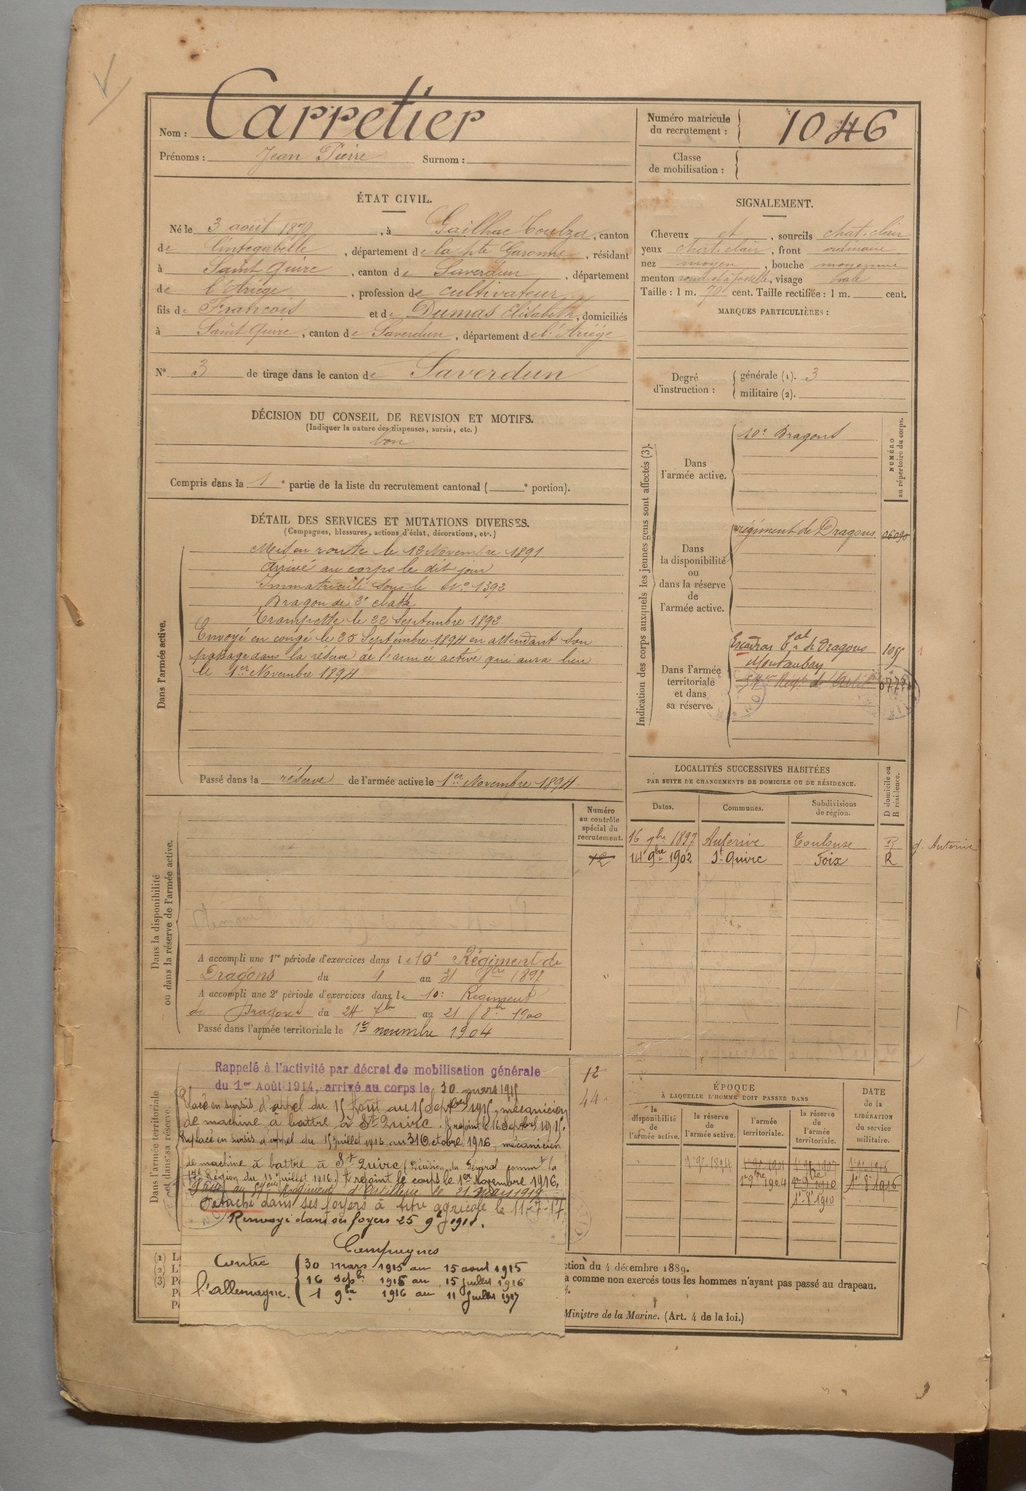 Nom : Carretier
Prénoms : Jean Pierre Surnom :
Numéro matricule du recrutement : 1046
Classe de mobilisation :
ÉTAT CIVIL.
Né le 3 août, à Gailhac Toulza, canton
de Cintegabelle, département de la Hte Garonne, résidant
à Saint Quirc, canton de Saverdun, département
de l'Ariège, profession de cultivateur
fils de François et de Dumas Elisabeth, domiciliés
à Saint Quirc, canton de Saverdun, département de l'Ariège
N° 3 de tirage dans le canton de Saverdun
SIGNALEMENT.
Cheveux et, sourcils chat. clair
yeux chat. clair, front ordinaire
nez moyen, bouche moyenne
menton rond et à fossette, visage ovale
Taille : 1 m. cent. Taille rectifiée : 1 m. cent.
MARQUES PARTICULIÈRES :
Degré d'instruction : générale (1). 3
militaire (2).
DÉCISION DU CONSEIL DE REVISION ET MOTIFS.
(Indiquer la nature des dispenses, sursis, etc.)
bon
Compris dans la 1e partie de la liste du recrutement cantonal ( e portion).
DÉTAIL DES SERVICES ET MUTATIONS DIVERSES.
(Campagnes, blessures, actions d'éclat, décorations, etc.)
Dans l'armée active.
Mis en route le 13 Novembre 1891
Arrivé au corps le dit jour
Immatriculé sous le No 1393
Dragon de 2e classe
Trompette le 22 Septembre 1893
Envoyé en congé le 25 Septembre 1894 en attendant son
passage dans la réserve de l'armée active qui aura lieu
le 1er Novembre 1894
Passé dans la réserve de l'armée active le 1er Novembre 1894
Indication des corps auxquels les jeunes gens sont affectés (3).
NUMÉRO au répertoire du corps.
Dans l'armée active.
10e Dragons
Dans la disponibilité ou dans la réserve de l'armée active.
régiment de Dragons
Dans l'armée territoriale et dans sa réserve.
Escadron de Dragons
Montauban
LOCALITÉS SUCCESSIVES HABITÉES
PAR SUITE DE CHANGEMENTS DE DOMICILE OU DE RÉSIDENCE.
Dates. Communes. Subdivisions de région. D domicile ou R résidence.
16 9bre 1897 Auterive Toulouse R
14 9bre 1902 St Quirc Foix R
Numéro au contrôle spécial du recrutement.
12
Dans la disponibilité ou dans la réserve de l'armée active.
A accompli une 1re période d'exercices dans le 10e Régiment de
Dragons du 4 au 31
A accompli une 2e période d'exercices dans le 10e Régiment
de Dragons du 24 7bre au 21 8bre 1900
Passé dans l'armée territoriale le 1er novembre 1904
Dans l'armée territoriale et dans sa réserve.
Rappelé à l'activité par décret de mobilisation générale
du 1er Août 1914, arrivé au corps le 30 mars 1915
Placé en sursis d'appel du 15 août au 15 Septbre 1915, mécanicien
de machine à battre à St Quirc. rejoint le 16 Septbre 1915.
Replacé en sursis d'appel du 15 juillet 1916 au 31 Octobre 1916, mécanicien
de machine à battre à St Quirc
rejoint le corps le 1er Novembre 1916.
Détaché dans ses foyers à titre agricole le 11-7-17
Renvoyé dans ses foyers 25 9bre 1918.
Campagnes
Contre l'allemagne.
30 mars 1915 au 15 aout 1915
16 sepbre 1915 au 15 juillet 1916
1 9bre 1916 au 11 juillet 1917
12
44
ÉPOQUE
A LAQUELLE L'HOMME DOIT PASSER DANS
la disponibilité de l'armée active. la réserve de l'armée active. l'armée territoriale. la réserve de l'armée territoriale.
DATE de la LIBÉRATION du service militaire.
ction du 4 décembre 1889.
a comme non exercés tous les hommes n'ayant pas passé au drapeau.
Ministre de la Marine. (Art. 4 de la loi.)